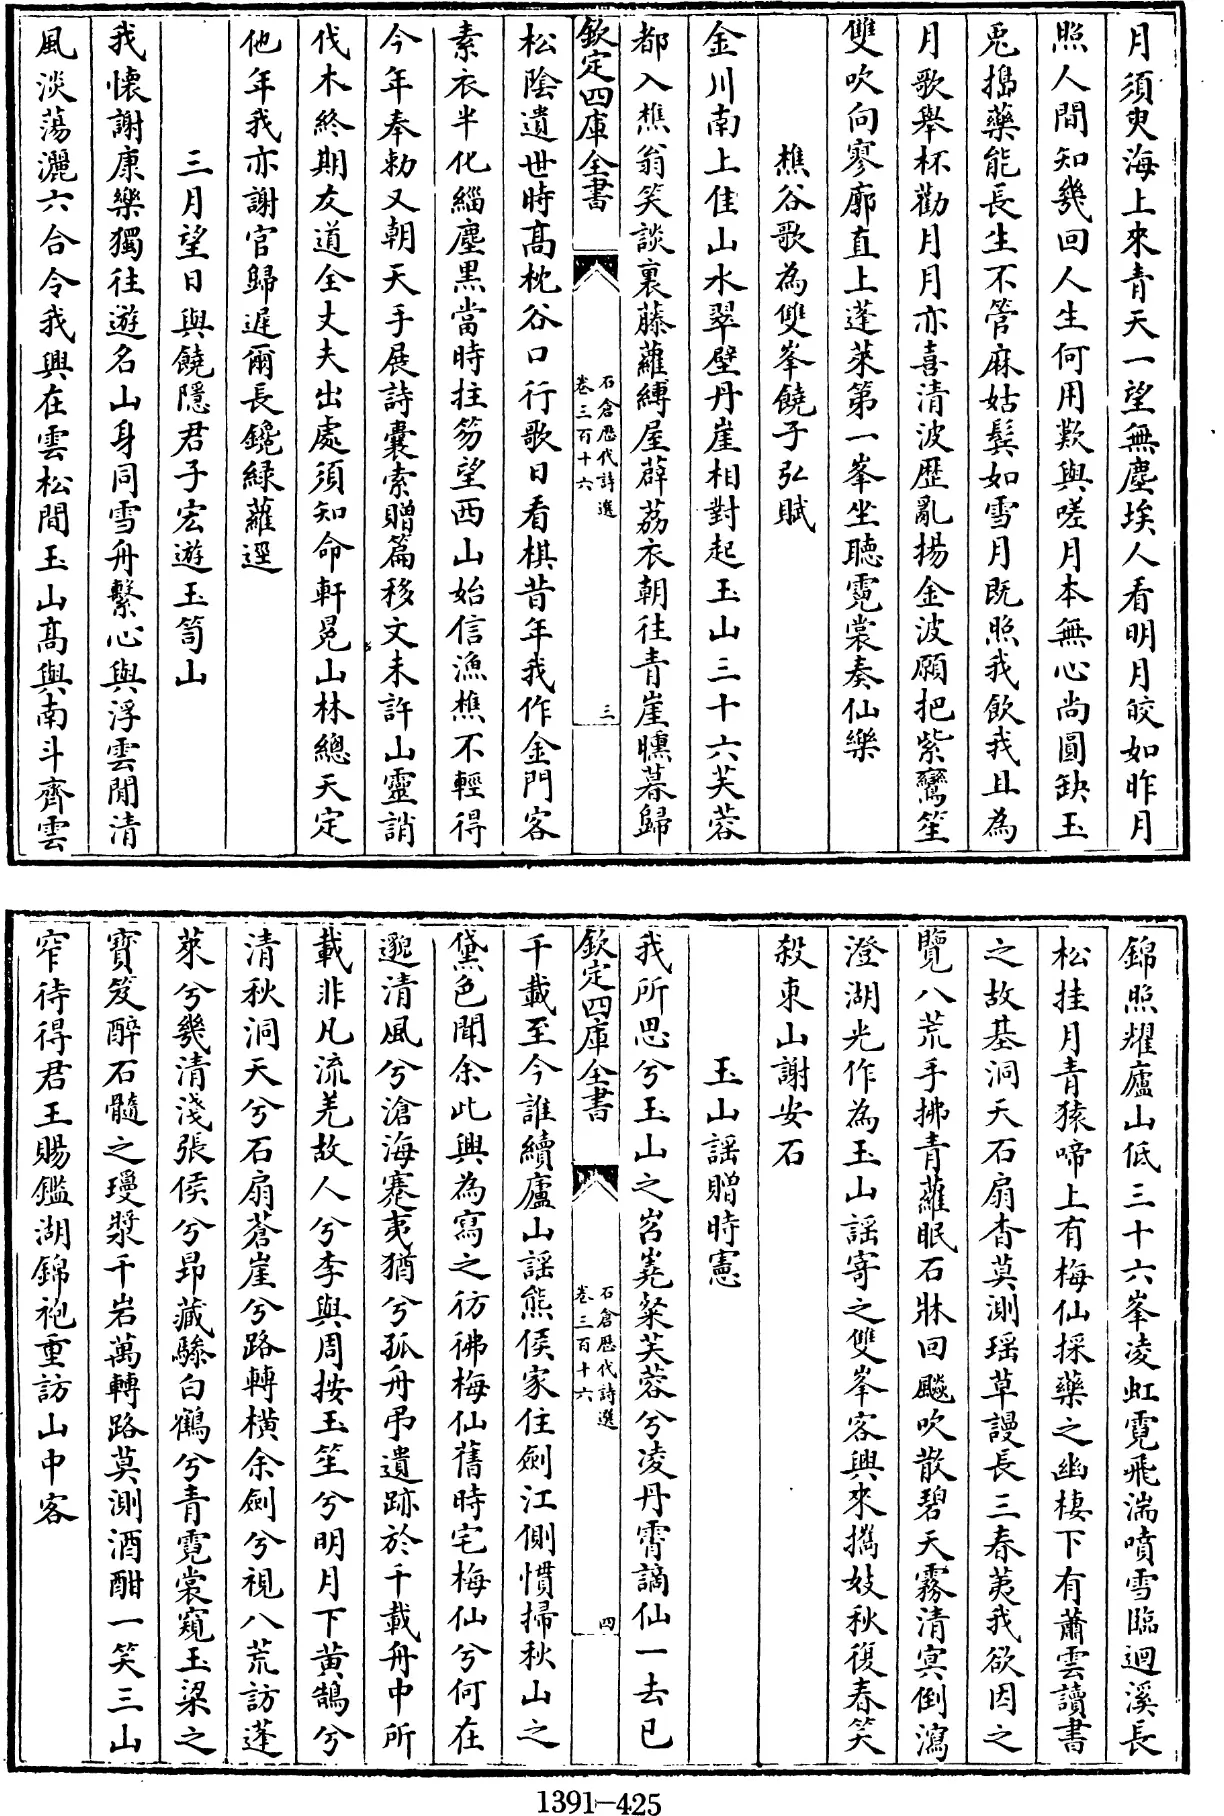 月須臾海上來青天一望無塵埃人看明月皎如昨月
照人間知幾回人生何用歎與嗟月本無心尚圓缺玉
兎搗藥能長生不管麻姑鬂如雪月既照我飲我且為
月歌舉杯勸月月亦喜清波歴亂揚金波願把紫鸞笙
雙吹向寥廓直上蓬萊第一峯坐聴霓裳奏仙樂
樵谷歌為雙峯饒子弘賦
金川南上佳山水翠壁丹崖相對起玉山三十六芙蓉
都入樵翁笑談裏藤蘿縛屋薜荔衣朝往青崖曛暮歸
欽定四庫全書
石倉歴代詩選
卷三百十六
三
松陰遺世時髙枕谷口行歌日看棋昔年我作金門客
素衣半化緇塵黑當時拄笏望西山始信漁樵不輕得
今年奉勅又朝天手展詩囊索贈篇移文未許山靈誚
伐木終期友道全丈夫出處須知命軒冕山林總天定
他年我亦謝官歸遲爾長鑱緑蘿逕
三月望日與饒隱君子宏遊玉笥山
我懷謝康樂獨往遊名山身同雪舟繫心與浮雲閒清
風淡蕩灑六合令我興在雲松間玉山髙與南斗齊雲
錦照耀廬山低三十六峯凌虹霓飛湍噴雪臨迴溪長
松挂月青猿啼上有梅仙採藥之幽棲下有蕭雲讀書
之故基洞天石扇杳莫測瑶草謾長三春荑我欲因之
覽八荒手拂青蘿眠石牀回飇吹散碧天霧清㝠倒瀉
澄湖光作為玉山謡寄之雙峯客興來攜妓秋復春笑
殺東山謝安石
玉山謡贈時憲
我所思兮玉山之岧嶤粲芙蓉兮凌丹霄謫仙一去已
欽定四庫全書
石倉歴代詩選
卷三百十六
四
千載至今誰續廬山謡熊侯家住劍江側慣掃秋山之
黛色聞余此興為寫之彷彿梅仙舊時宅梅仙兮何在
邈清風兮滄海蹇夷猶兮孤舟弔遺跡於千載舟中所
載非凡流羌故人兮李與周按玉笙兮明月下黄鵠兮
清秋洞天兮石扇蒼崖兮路轉横余劍兮視八荒訪蓬
萊兮幾清淺張侯兮昻藏驂白鶴兮青霓裳窺玉梁之
寳笈醉石髓之瓊漿千岩萬轉路莫測酒酣一笑三山
窄待得君王賜鑑湖錦袍重訪山中客
1391-425